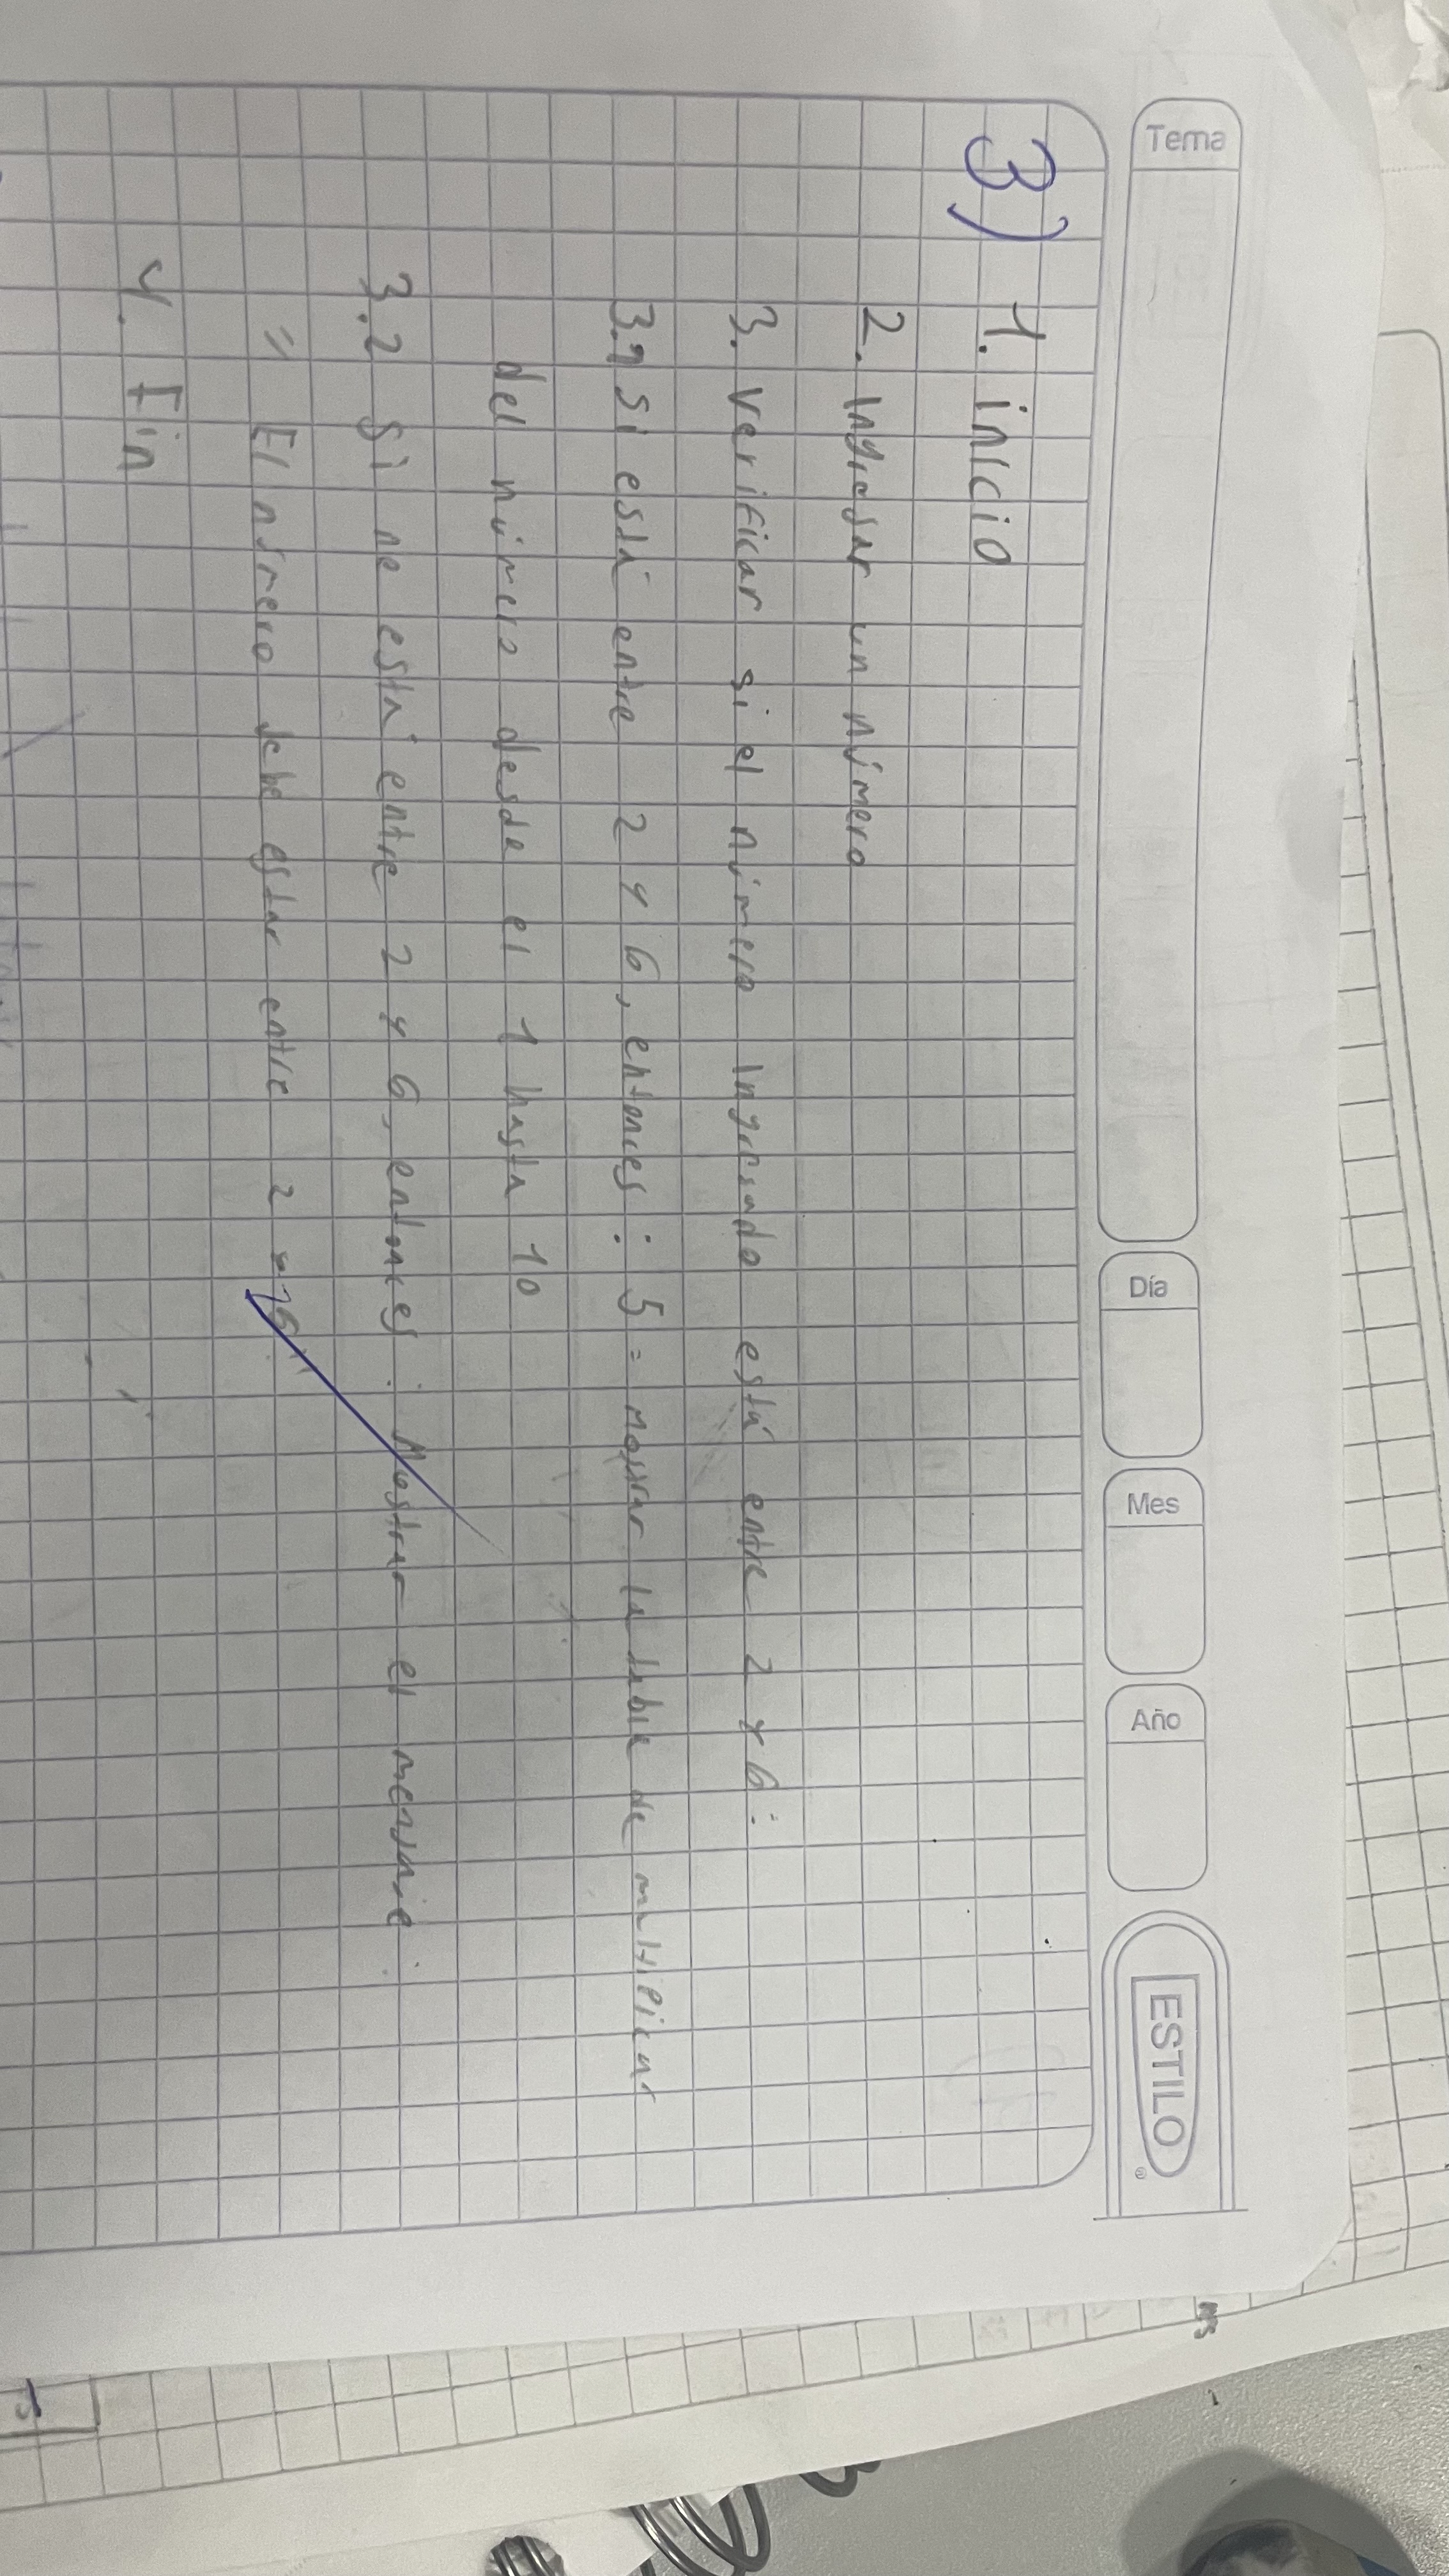 Tema
Día
Mes
Año
ESTILO
3)
1. inicio
2. Ingresar un número
3. Verificar si el número ingresado está entre 2 y 6:
3.1 Si está entre 2 y 6, entonces: 5 = mostrar la tabla de multiplicar
del número desde el 1 hasta 10
3.2 Si no está entre 2 y 6, entonces: Mostrar el mensaje:
" El número debe estar entre 2 y
4. Fin